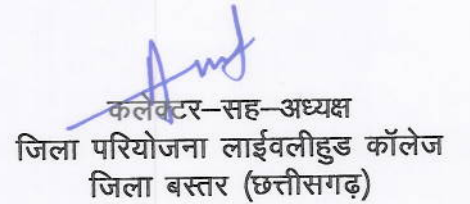 कलेक्टर–सह–अध्यक्ष
जिला परियोजना लाईवलीहुड कॉलेज
जिला बस्तर (छत्तीसगढ़)